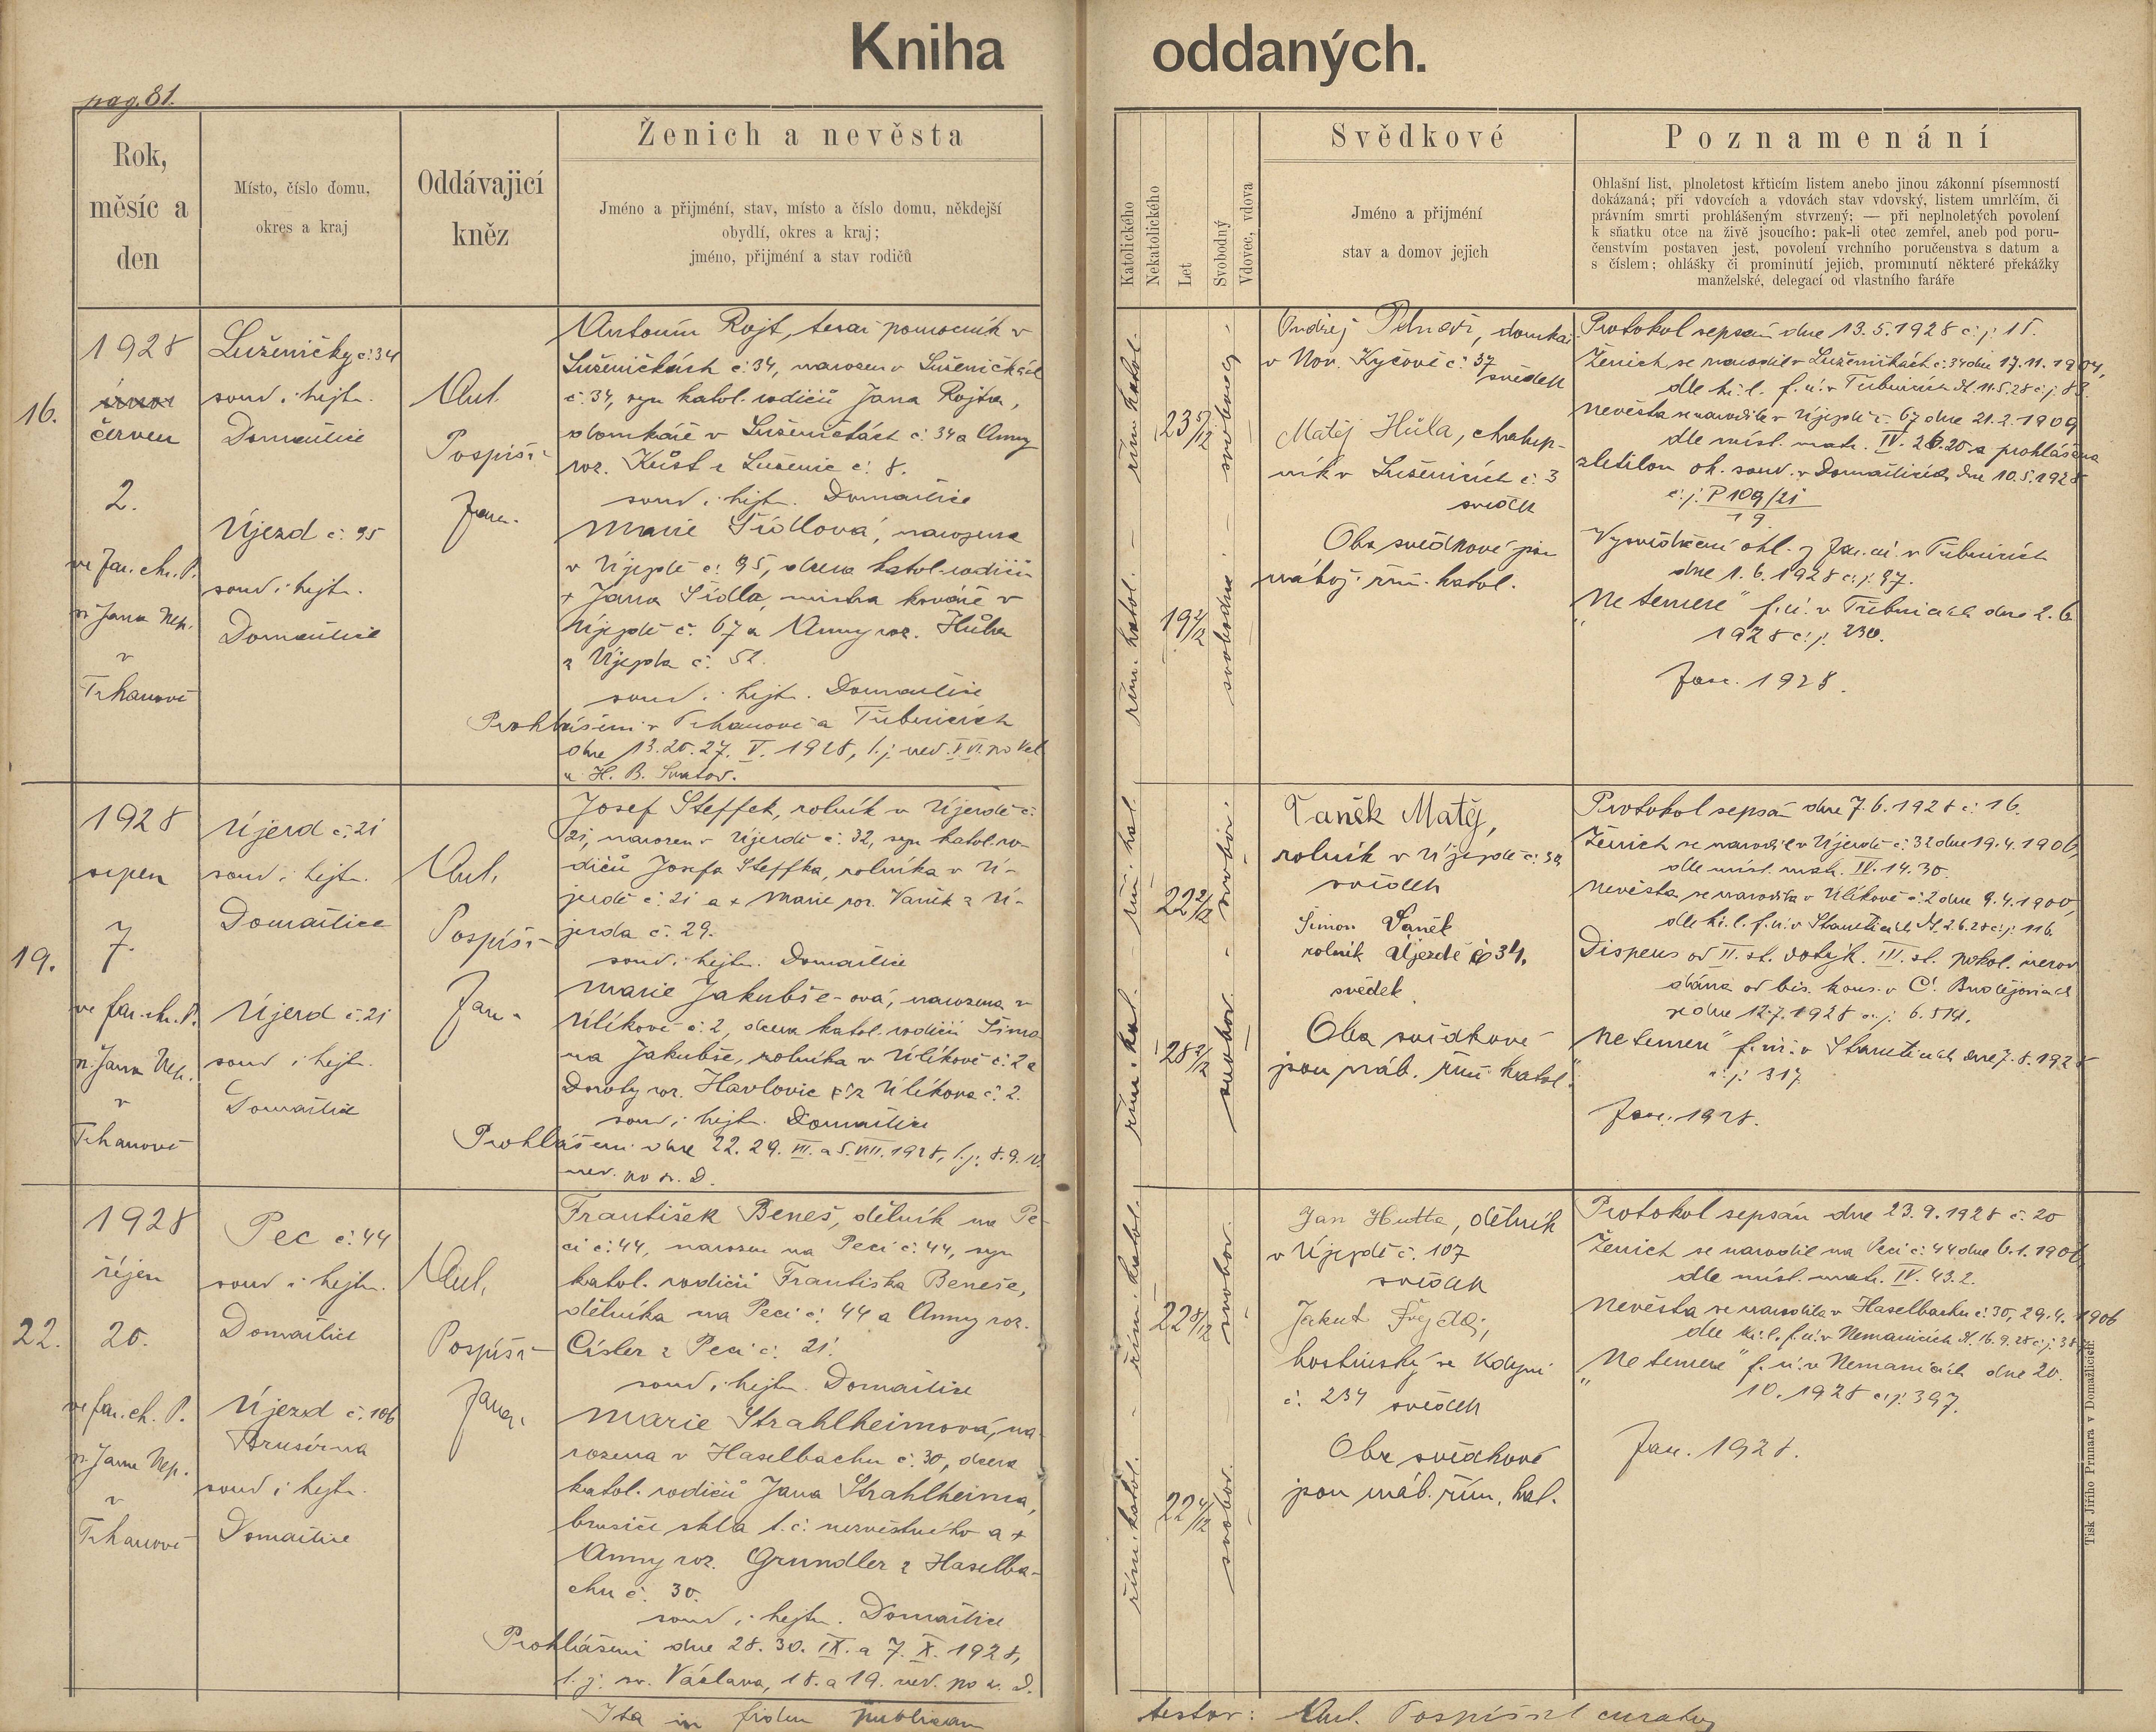 Kniha oddaných.
pag. 81.
Rok,
měsíc a
den
Místo, číslo domu,
okres a kraj
Oddávajicí
kněz
Ženich a nevěsta
Jméno a přijmění, stav, místo a číslo domu, někdejší
obydlí, okres a kraj;
jméno, přijmění a stav rodičů
Katolického
Nekatolického
Let
Svobodný
Vdovec, vdova
Svědkové
Jméno a přijmění
stav a domov jejich
Poznamenání
Ohlašní list, plnoletost křticím listem anebo jinou zákonní písemností
dokázaná; při vdovcích a vdovách stav vdovský, listem umrlčím, či
právním smrti prohlášeným stvrzený; — při neplnoletých povolení
k sňatku otce na živě jsoucího: pak-li otec zemřel, aneb pod poru-
čenstvím postaven jest, povolení vrchního poručenstva s datum a
s číslem; ohlášky či prominutí jejich, prominutí některé překážky
manželské, delegací od vlastního faráře
16.
1928
červen
2.
ve far. ch. P.
sv. Jana Nep.
v
Trhanově
Luženičky č: 34
soud i hejt.
Domažlice
Újezd č: 95
soud i hejt.
Domažlice
Ant.
Pospíši-
far.
Antonín Rojt, tesař pomocník v
Luženičkách č: 34, narozen v Luženičkách
č: 34, syn katol. rodičů Jana Rojta,
domkáře v Luženičkách č: 34 a Anny
roz. z Luženic č: 8.
soud i hejt. Domažlice
Marie Sídlová, narozena
v Újezdě č: 95, dcera katol. rodičů
+ Jana Sídla, mistra kováře v
Újezdě č. 67 a Anny roz. Hůla
z Újezda č. 51.
soud i hejt. Domažlice
Prohlášeni v Trhanově a
dne 13. 20. 27. V. 1928, t. j. ned. V VI. po Vel.
a H. B. Svatod.
řím. katol.
23 5/12
svobodný
řím. katol.
19 2/12
svobodna
Ondřej, domkář
v Nov. Kyčově č: 37
svědek
Matěj Hůla, chalup-
ník v Luženicích č: 3
svědek
Oba svědkové jsou
nábož. řím. katol.
Protokol sepsán dne 13. 5. 1928 č: j: 15.
Ženich se narodil v Luženičkách č: 34 dne 17. 11. 1904,
dle kř. l. f. ú. v 11. 5. 28 č: j: 83.
Nevěsta se narodila v Újezdě č. 67 dne 21. 2. 1909
dle míst. matr. IV. 20 a prohlášena
zletilou ok. soud. v Domažlicích dne 10. 5. 1928
č: j: P 109/21
19
Vysvědčení ohl. z far. ú. v
dne 1. 6. 1928 č: j: 97.
„Ne temere" f. ú. v dne 2. 6.
1928 č: j: 230.
Fasc. 1928.
19.
1928
srpen
7.
ve far. ch. P.
sv. Jana Nep.
v
Trhanově
Újezd č: 21
soud i hejt.
Domažlice
Újezd č: 21
soud i hejt.
Domažlice
Ant.
Pospíši-
far.
Josef Steffek, rolník v Újezdě č:
21, narozen v Újezdě č: 32, syn katol. ro-
dičů Josefa Steffka, rolníka v Ú-
jezdě č: 21 a + Marie roz. Vaněk z Ú-
jezda č: 29.
soud i hejt. Domažlice
Marie Jakubše-ová, narozena v
Úlíkově č: 2, dcera katol. rodičů Šimo-
na Jakubše, rolníka v Úlíkově č: 2 a
Doroty roz. Havlovic z Úlíkova č: 2.
soud i hejt. Domažlice
Prohlášeni dne 22. 29. VII. a 5. VIII. 1928, t. j. 8. 9. 10.
ned. po sv. D.
řím. kat.
22 2/12
svobod.
řím. kat.
28 2/12
svobod.
Vaněk Matěj,
rolník v Újezdě č:
svědek
Šimon Vaněk
rolník Újezdě č 34.
svědek
Oba svědkové
jsou náb. řím. katol.
Protokol sepsán dne 7. 6. 1928 č: 16.
Ženich se narodil v Újezdě č: 32 dne 19. 4. 1906,
dle míst. matr. IV. 14. 30.
Nevěsta se narodila v Úlíkově č: 2 dne 9. 4. 1900,
dle kř. l. f. ú. v Stanětících 2. 6. 28 č: j: 116.
Dispens od II. st. dotýk. III. st. pokol. nerov.
dána od bis. kons. v Č. Budějovicích
ze dne 12. 7. 1928 č: j: 6.514.
„Ne temere" f. ú. v Stanětících dne 7. 8. 1928
č: j: 317
Fasc. 1928.
22.
1928
říjen
20.
ve far. ch. P.
sv. Jana Nep.
v
Trhanově
Pec č: 44
soud i hejt.
Domažlice
Újezd č. 106
Brusírna
soud i hejt.
Domažlice
Ant.
Pospíši-
far.
František Beneš, dělník na Pe-
ci č: 44, narozen na Peci č: 44, syn
katol. rodičů Františka Beneše,
dělníka na Peci č: 44 a Anny roz.
Císler z Peci č: 21.
soud i hejt. Domažlice
Marie Strahlheimová, na-
rozena v Haselbachu č: 30, dcera
katol. rodičů Jana Strahlheima,
brusiče skla t. č: nezvěstného a +
Anny roz. Grundler z Haselba-
chu č: 30.
soud i hejt. Domažlice
Prohlášeni dne 28. 30. IX. a 7. X. 1928,
t. j. sv. Václava, 18. a 19. ned. po sv. D.
řím. katol.
22 8/12
svobod.
řím. katol.
22 4/12
svobod.
Jan Hutta, dělník
v Újezdě č. 107
svědek
Jakub,
hostinský ve Kdyni
č: 234 svědek
Oba svědkové
jsou náb. řím. kat.
Protokol sepsán dne 23. 9. 1928 č: 20
Ženich se narodil na Peci č: 44 dne 6. 1. 1906
dle míst. matr. IV. 43. 2.
Nevěsta se narodila v Haselbachu č: 30, 29. 4. 1906
dle kř. l. f. ú. v Nemanicích 16. 9. 28 č: j:
„Ne temere" f. ú. v Nemanicích dne 20.
10. 1928 č: j: 397.
Fasc. 1928.
Tisk Jiřího Prunara v Domažlicích.
Ita in fidem publicam
testor: Ant. Pospíšil curatus